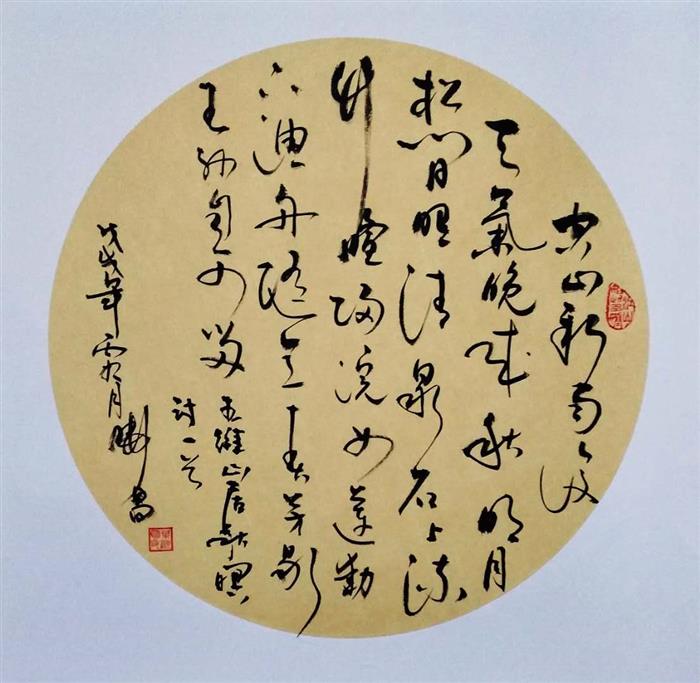 空山新雨後
天氣晚来秋明月
松間照清泉石上流
竹喧歸浣女蓮動
下漁舟隨意春芳歇
王孫自可留
王維山居秋暝
詩一首
戊戌年霜月